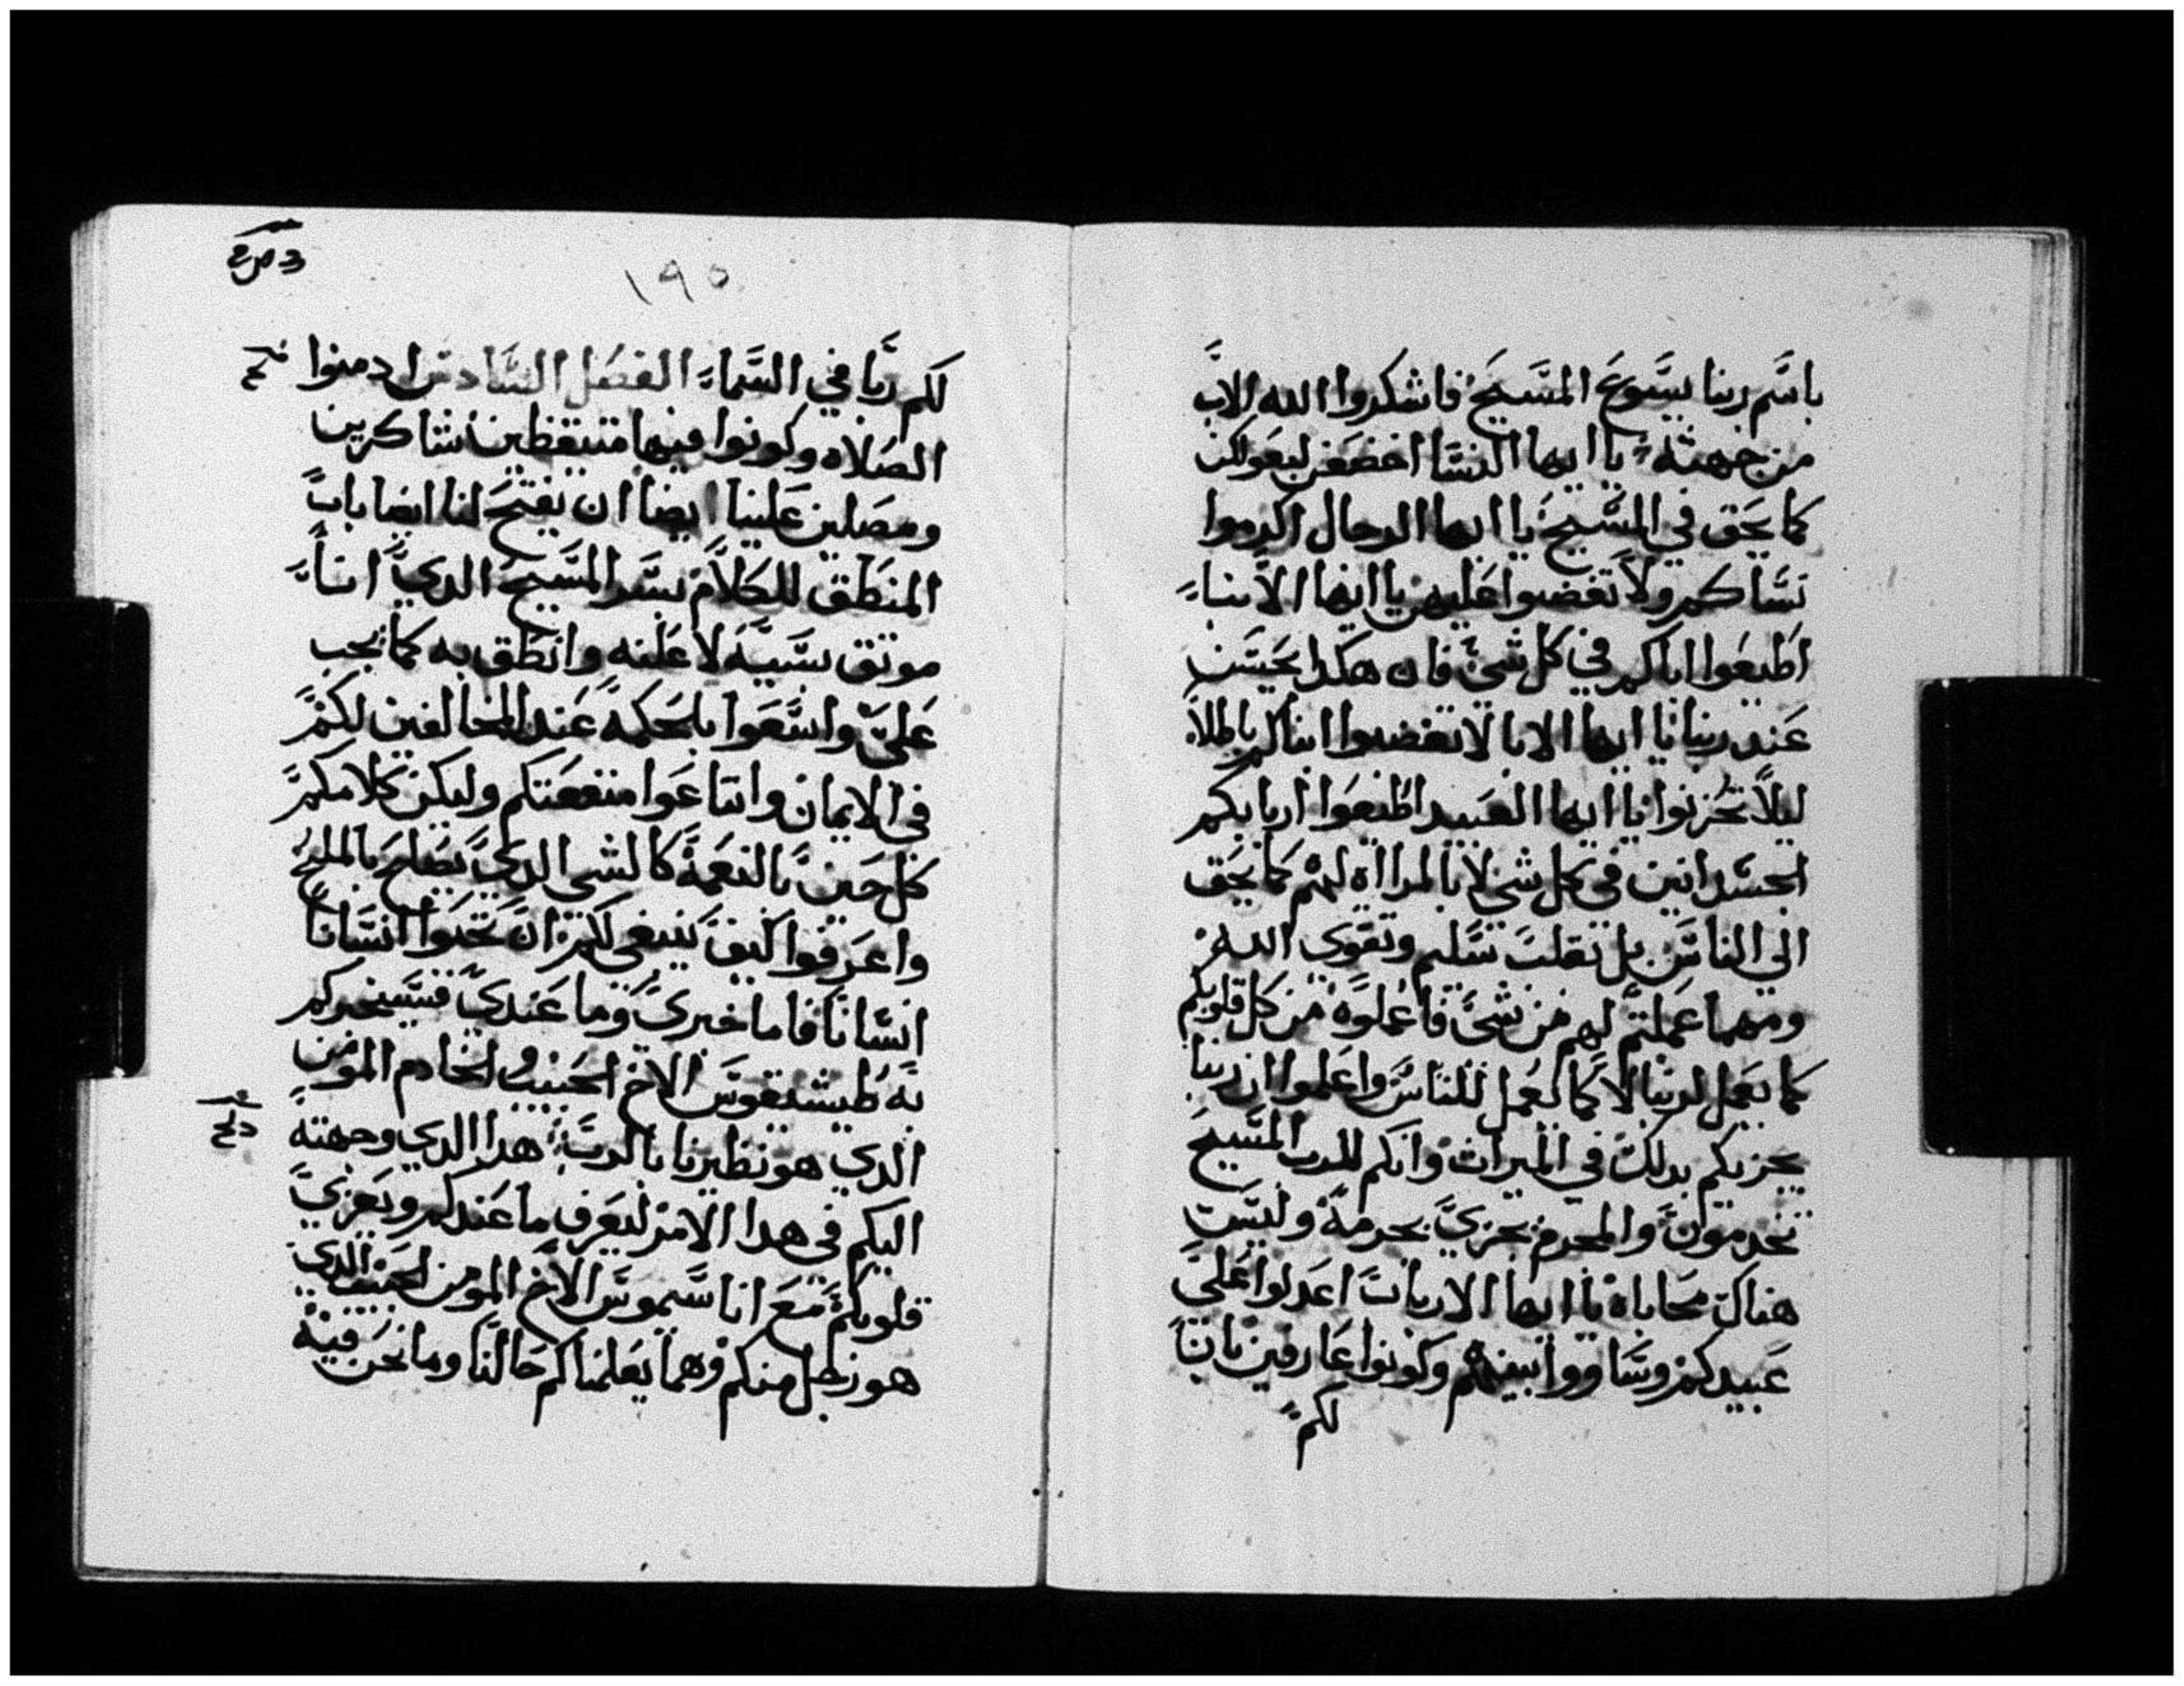 باسم ربنا يسوع المسيح فاشكروا الله الاب
من جهته يا ايها النسا اخضعن لبعولكن
كما يحق في المسيح يا ايها الرجال اكرموا
نساكم ولا تغضبوا عليهن يا ايها الابناء
اطيعوا اباكم في كل شئ فان هكذا يحسن
عند ربنا يا ايها الابا لا تغضبوا ابناكم باطلاً
ليلا تحزنوا يا ايها العبيد اطيعوا اربابكم
الجسدانيين في كل شي لا بالمرااه لهم كما يحق
الي الناس بل بقلب سليم وتقوي الله
ومهما عملتم لهم من شئ فاعملوه من كل قلوبكم
كما يعمل لربنا لا كما يعمل للناس واعلموا ان ربنا
يجزيكم بدلك في الميراث وانكم للرب المسيح
تخدمون والمجرم يجزي بجرمه وليست
هناك محاباه يا ايها الارباب اعدلوا علي
عبيدكم وساووا بينهم وكونوا عارفين بان
لكم
١٩٥
لكم ربا في السماء الفصل السادس ادمنوا
الصلاه وكونوا فيها متيقظين شاكرين
ومصلين علينا ايضا ان يفتح لنا ايضا باب
المنطق للكلام بسر المسيح الدي انا
موتق بسببه لاعلنه وانطق به كما يجب
علي واسعوا بالحكمه عند المخالفين لكم
في الايمان وابتاعوا منفعتكم وليكن كلامكم
كل حين بالنعمه كالشي الدي يصلح بالملح
واعرفوا كيف ينبغي لكم ان تجيبوا انسانا
انسانا فاما خبري وما عندي فسيخبركم
به طيشيقوس الاخ الحبيب الخادم المومن
الدي هو نظيرنا بالرب هدا الدي وجهته
اليكم في هدا الامر ليعرف ما عندكم ويعزي
قلوبكم مع اناسيموس الاخ المومن الحبيب الدي
هو رجل منكم وهما يعلماكم حالنا وما نحن فيه